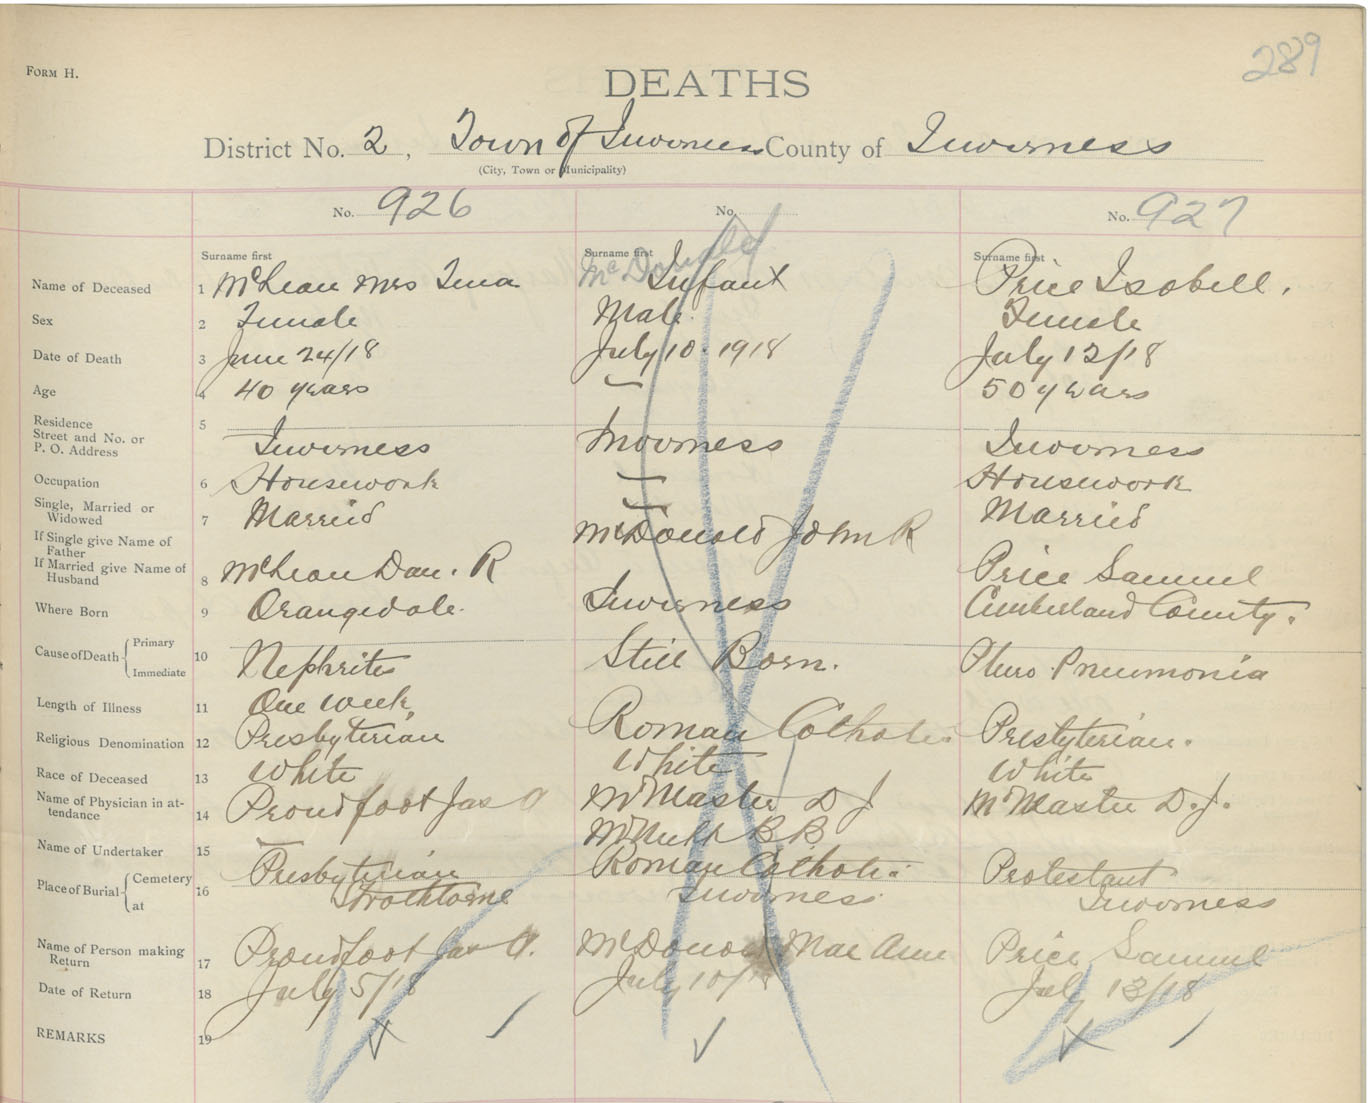 289
FORM H.
DEATHS
District No. 2, Town of Inverness County of Inverness
(City, Town or Municipality)
No. 926
No.
No. 927
Surname first
Surname first
Surname first
McDonald
Name of Deceased 1 McLean Mrs Tena Infant Price Isobell.
Sex 2 Female Male Female
Date of Death 3 June 24/18 July 10 - 1918 July 12/18
Age 4 40 years — 50 years
Residence
Street and No. or
P. O. Address 5 Inverness Inverness Inverness
Occupation 6 Housework — Housework
Single, Married or
Widowed 7 Married — Married
If Single give Name of
Father McDonald John R
If Married give Name of
Husband 8 McLean Dan. R Price Samuel
Where Born 9 Orangedale. Inverness Cumberland County.
Cause of Death { Primary
Immediate 10 Nephritis Still Born. Pleuro Pneumonia
Length of Illness 11 One week
Religious Denomination 12 Presbyterian Roman Catholic. Presbyterian.
Race of Deceased 13 White White White
Name of Physician in at-
tendance 14 Proudfoot Jas A McMaster D J McMaster D. J.
Name of Undertaker 15 — B. B.
Place of Burial { Cemetery Presbyterian Roman Catholic Protestant
at 16 Strathlorne Inverness Inverness
Name of Person making
Return 17 Proudfoot Jas A. McDonald Mae Ann Price Samuel
Date of Return 18 July 5/18 July 10/18 July 13/18
REMARKS 19